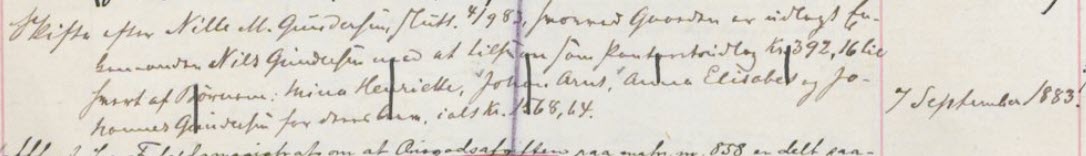 Skifte efter Nille M. Gundersen, slutt. 4/9 83, hvorved Gaarden er udlagt En-
kemanden Nils Gundersen med at tilsvare som Panteretsudlæg Kr. 392,16 til
hvert af Børnene: Mina Henriette, Johan Arnt, Anna Elisabeth og Jo-
hannes Gundersen for deres Arv, ialt Kr. 1568,64.
7 September 1883.
om at paa matr. nr. 858 er delt paa-